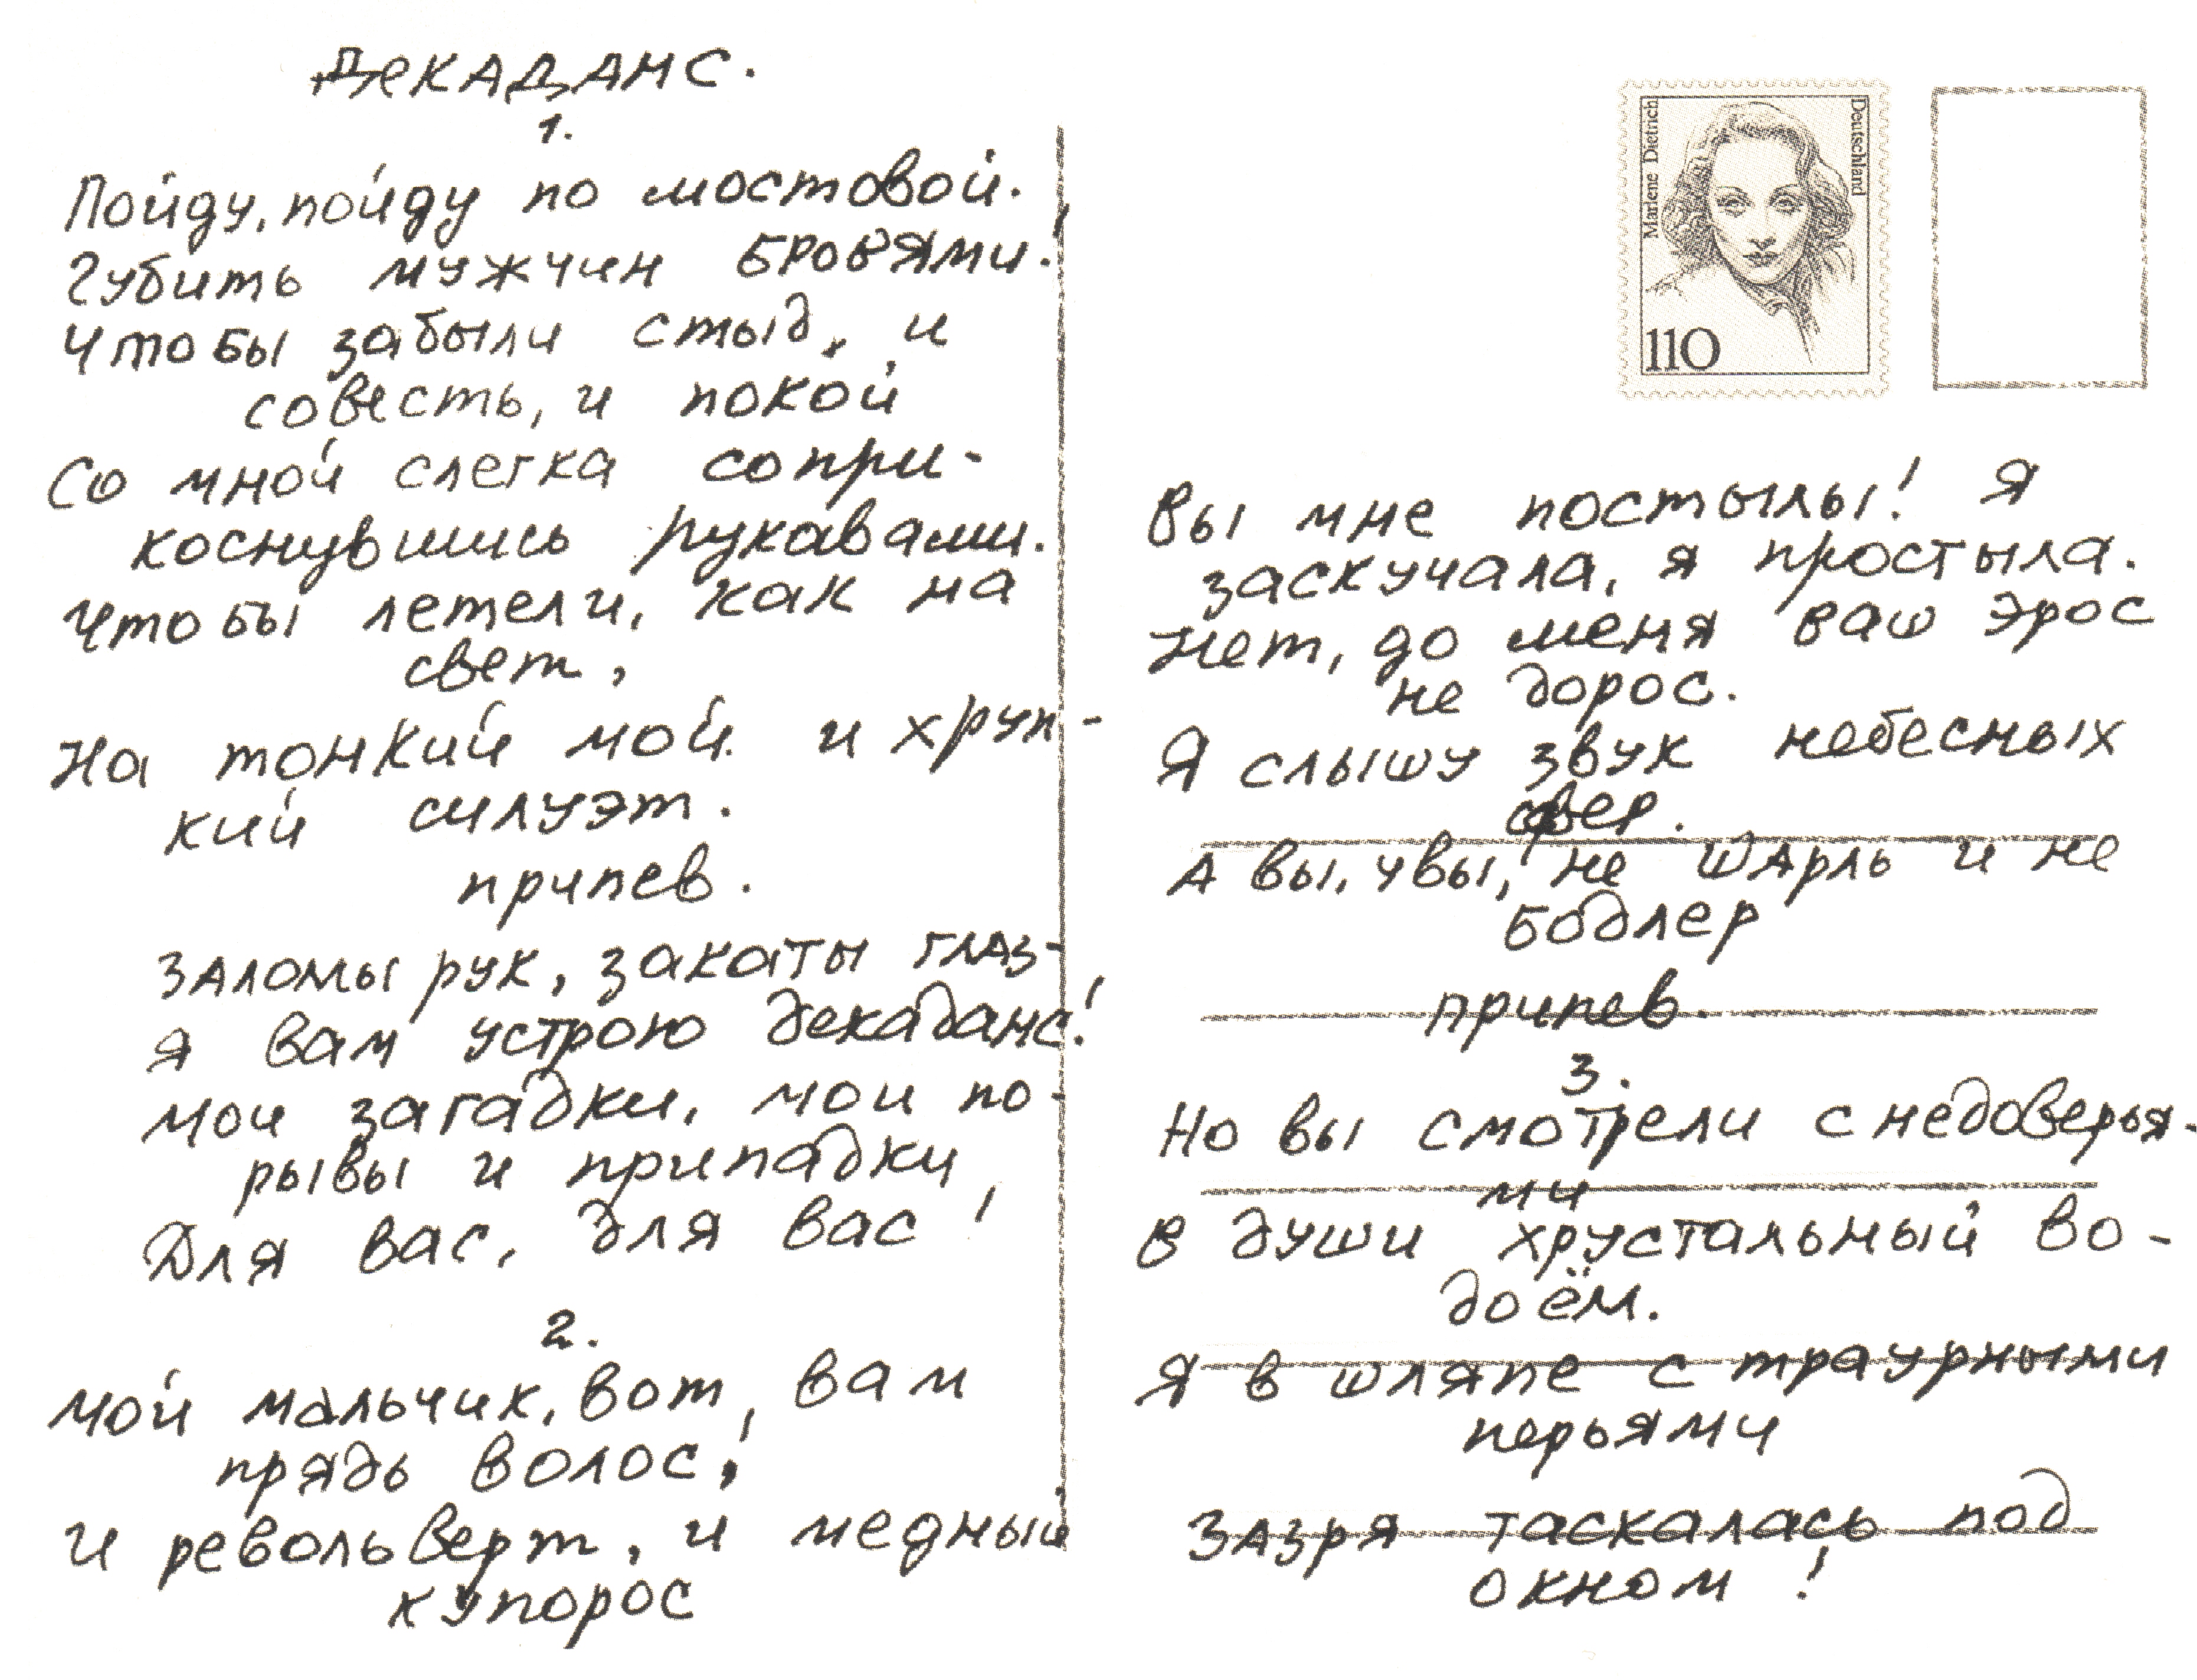 Декаданс.
1.
Пойду, пойду по мостовой.
Губить мужчин бровями!
Чтобы забыли стыд, и
совесть, и покой
Со мной слегка сопри-
коснувшись рукавами.
Чтобы летели, как на
свет,
На тонкий мой и хруп-
кий силуэт.
припев.
Заломы рук, закаты глаз-
Я вам устрою декаданс!
Мои загадки, мои по-
рывы и припадки
Для вас, для вас!
2.
Мой мальчик, вот, вам
прядь волос!
И револьверт, и медный
купорос
Marlene Dietrich
Deutschland
110
Вы мне постылы! Я
заскучала, я простыла.
Нет, до меня ваш эрос
не дорос.
Я слышу звук небесных
сфер.
А вы, увы, не Шарль и не
Бодлер
припев.
3.
Но вы смотрели с недоверья-
ми
В души хрустальный во-
доём.
Я в шляпе с траурными
перьями
Зазря таскалась под
окном!